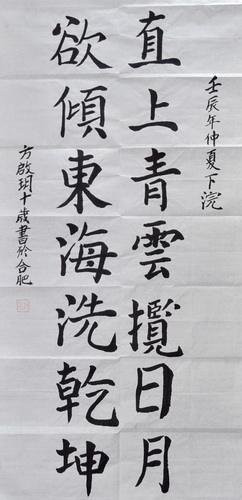 壬辰年仲夏下浣
直上青雲攬日月
欲傾東海洗乾坤
方啟玥十歲書於合肥